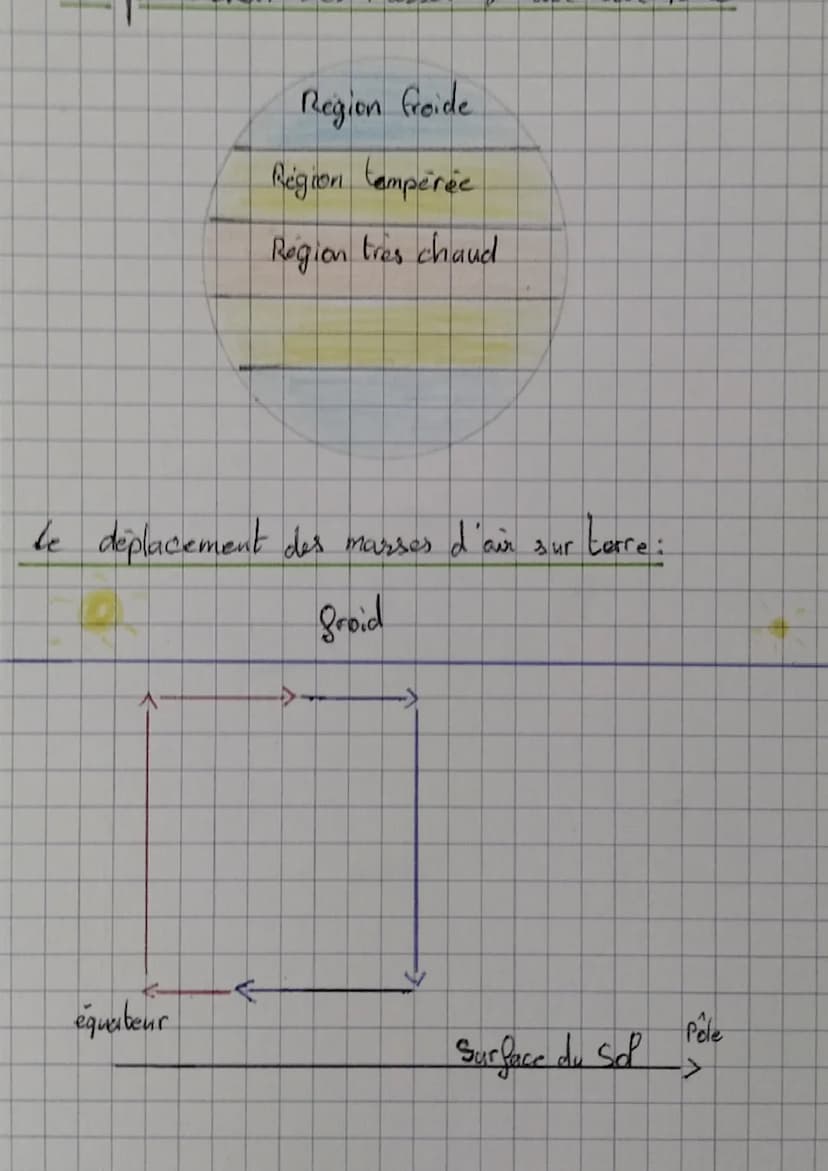 Région froide
Région tempérée
Région très chaud
Le déplacement des masses d'air sur terre:
froid
équateur
Pôle
Surface du Sol